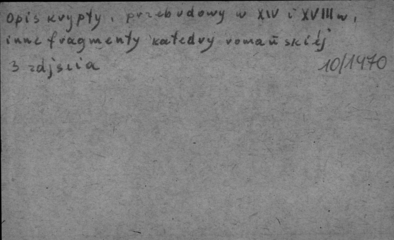 Opis krypty, przebudowy w XIV i XVIII w,
inne fragmenty katedry romańskiej
3 zdjęcia 10/1470